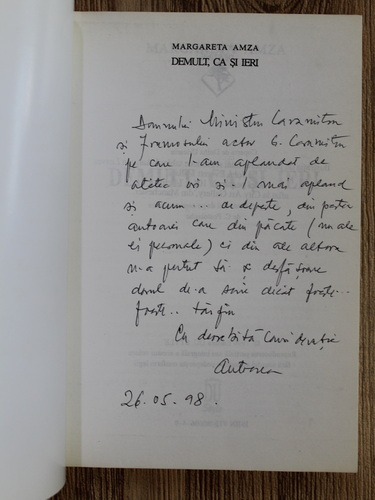 MARGARETA AMZA
DEMULT, CA ȘI IERI
Domnului Ministru Caramitru
și frumosului actor G. Caramitru
pe care l-am aplaudat de
atâtea ori și-l mai aplaud
și acum ... de departe, din partea
autoarei care din păcate (nu ale
ei personale) ci din ale altora
n-a putut să desfășoare
darul de-a scrie decât foarte...
foarte.. târziu
Cu deosebită considerație
Autoarea
26.05.98.